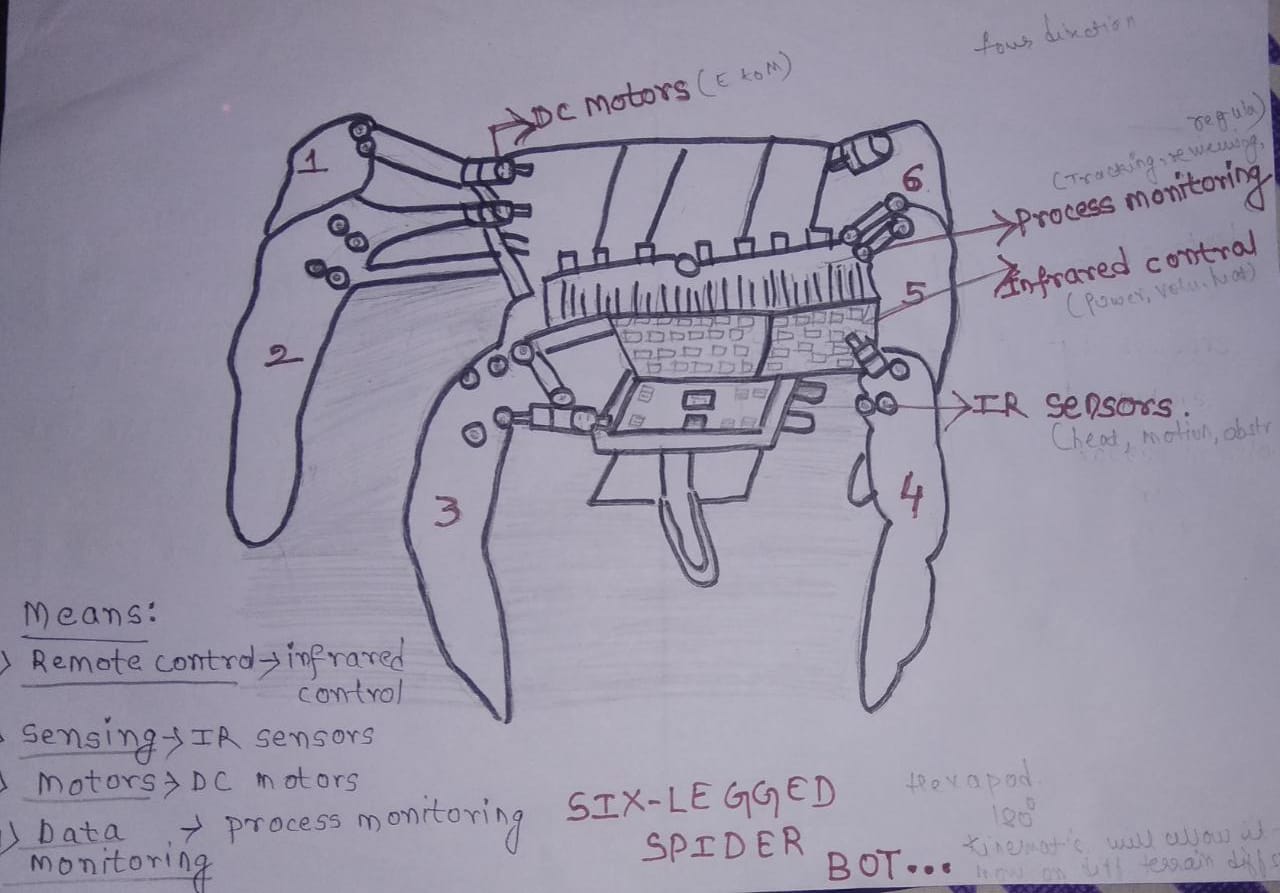 four direction
DC motors (E to M)
regula)
(Tracking, reviewing,
process monitoring
Infrared control
(power, volu, heat)
IR sensors.
(heat, motion, obstr
1
2
3
4
5
6
Means:
Remote control → infrared
control
Sensing → IR sensors
Motors → DC motors
Data → process monitoring
monitoring
SIX-LEGGED
SPIDER
BOT...
Hexapod
120°
Kinematic will allow it
on diff terrain